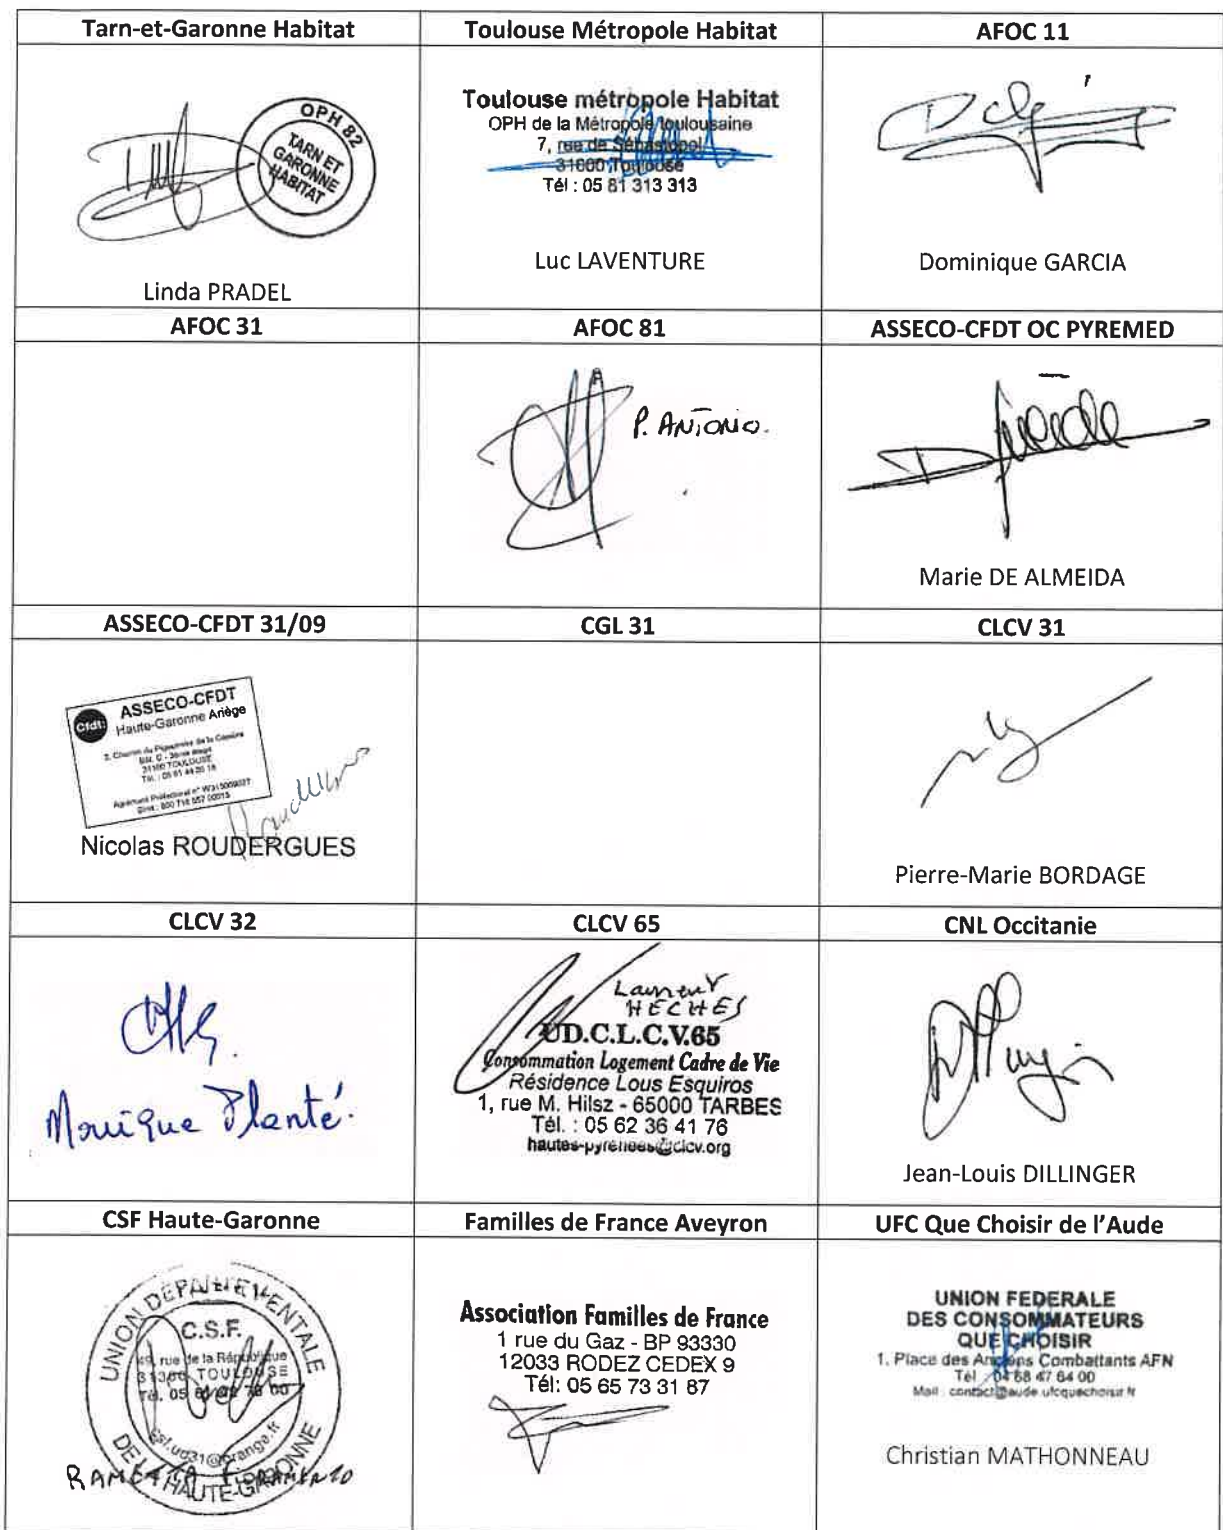 Tarn-et-Garonne Habitat
Toulouse Métropole Habitat
AFOC 11
OPH 82
TARN ET
GARONNE
HABITAT
Linda PRADEL
Toulouse métropole Habitat
OPH de la Métropole toulousaine
7, rue de Sébastopol
31000 Toulouse
Tél : 05 81 313 313
Luc LAVENTURE
Dominique GARCIA
AFOC 31
AFOC 81
ASSECO-CFDT OC PYREMED
P. ANTONIO.
Marie DE ALMEIDA
ASSECO-CFDT 31/09
CGL 31
CLCV 31
Cfdt:
ASSECO-CFDT
Haute-Garonne Ariège
31100 TOULOUSE
Nicolas ROUDERGUES
Pierre-Marie BORDAGE
CLCV 32
CLCV 65
CNL Occitanie
Monique Planté.
Laurent
HECHES
UD.C.L.C.V.65
Consommation Logement Cadre de Vie
Résidence Lous Esquiros
1, rue M. Hilsz - 65000 TARBES
Tél. : 05 62 36 41 76
hautes-pyrenees@clcv.org
Jean-Louis DILLINGER
CSF Haute-Garonne
Familles de France Aveyron
UFC Que Choisir de l'Aude
UNION DEPARTEMENTALE
C.S.F.
rue de la République
TOULOUSE
csf.ud31@orange.fr
DE LA HAUTE-GARONNE
Association Familles de France
1 rue du Gaz - BP 93330
12033 RODEZ CEDEX 9
Tél: 05 65 73 31 87
UNION FEDERALE
DES CONSOMMATEURS
QUE CHOISIR
1, Place des Anciens Combattants AFN
Tél : 04 68 47 64 00
Mail : contact@aude.ufcquechoisir.fr
Christian MATHONNEAU